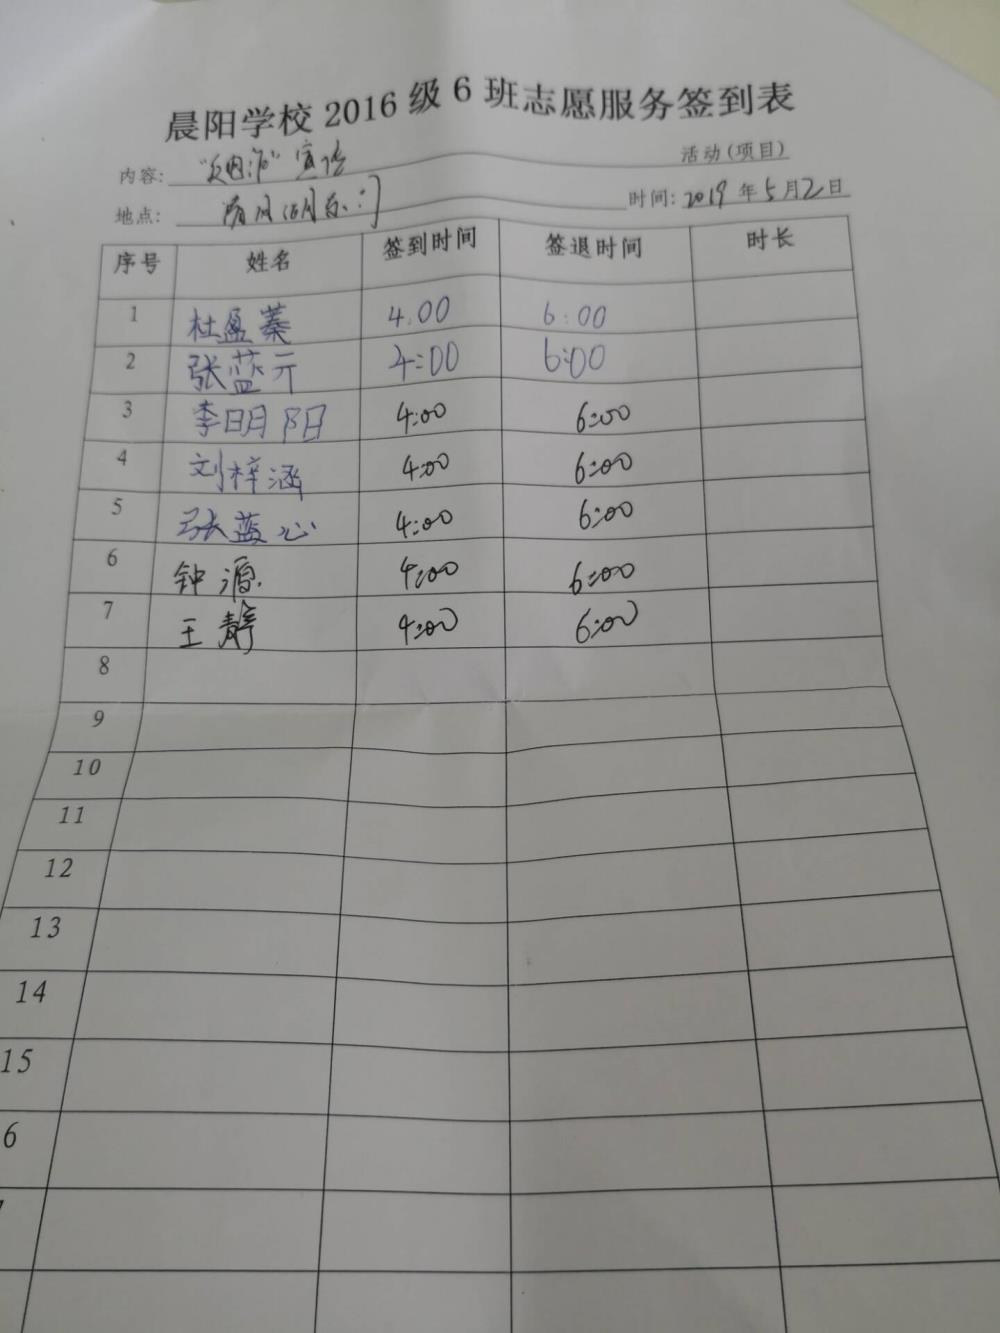 晨阳学校2016级6班志愿服务签到表
内容: 宣传 活动(项目)
地点: 时间: 2019年5月2日
序号 姓名 签到时间 签退时间 时长
1 杜盈蓁 4:00 6:00
2 张蓝亓 4:00 6:00
3 李明阳 4:00 6:00
4 刘梓涵 4:00 6:00
5 张蓝心 4:00 6:00
6 钟源 4:00 6:00
7 王静 4:00 6:00
8
9
10
11
12
13
14
15
6